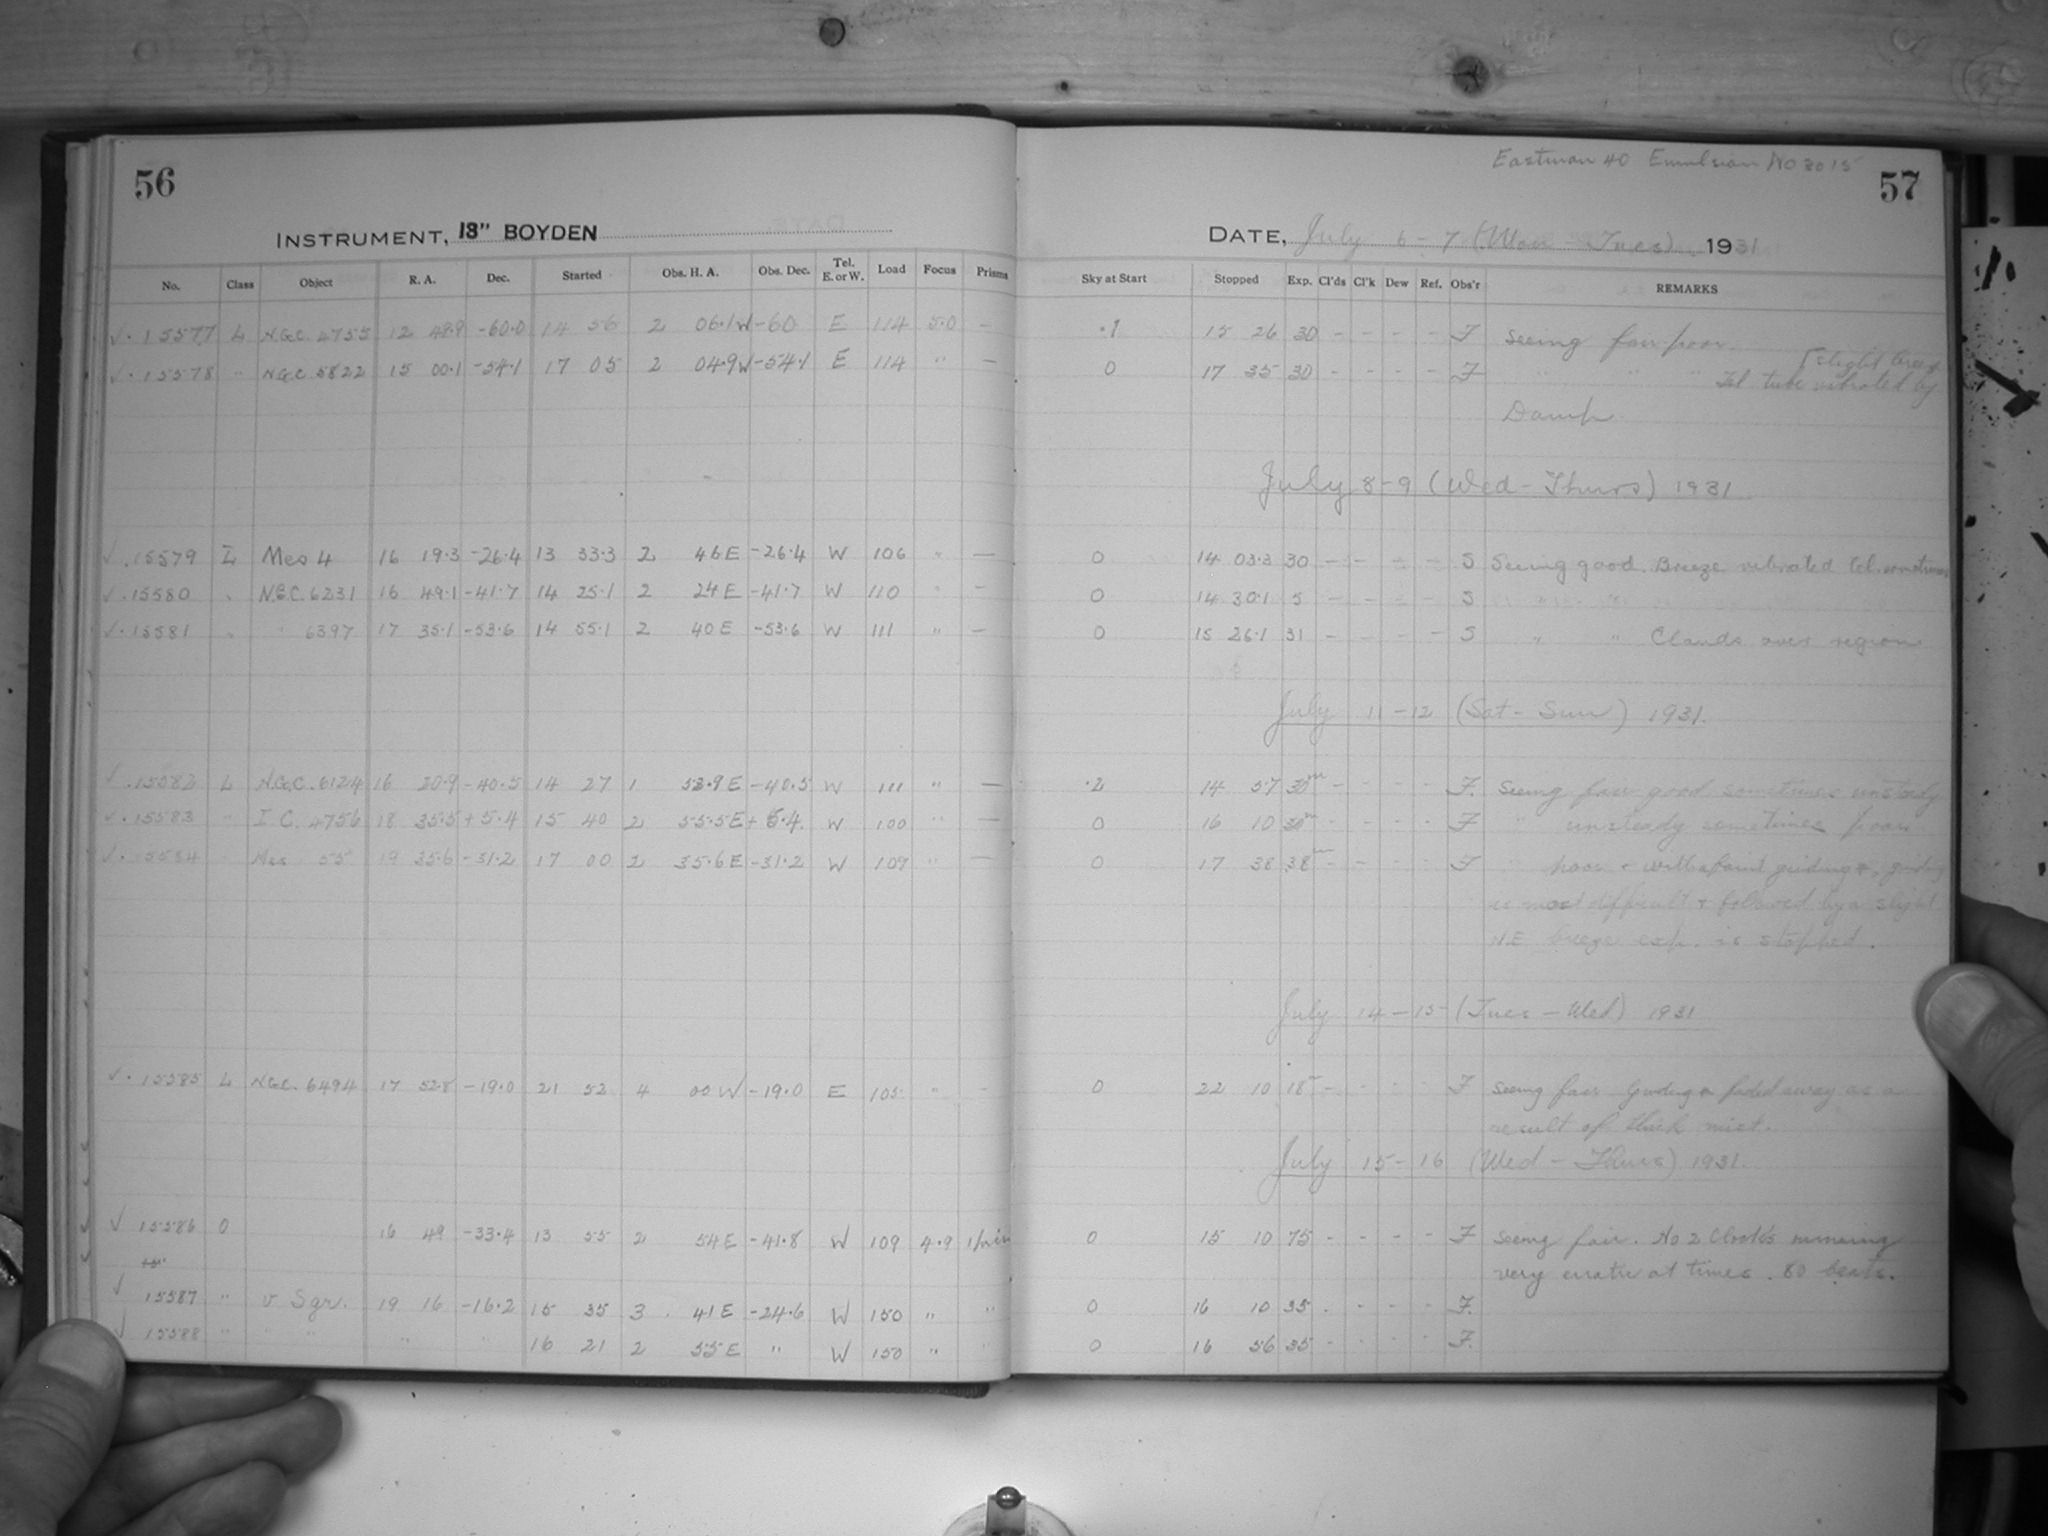 56
INSTRUMENT, 13" BOYDEN
No. Class Object R. A. Dec. Started Obs. H. A. Obs. Dec. Tel. E. or W. Load Focus Prisms
✓ . 15577 L N.G.C. 4755 12 48.9 -60.0 14 56 2 06.1W -60 E 114 5.0 -
✓ . 15578 " N.G.C. 5822 15 00.1 -54.1 17 05 2 04.9W -54.1 E 114 " -
✓ . 15579 L Mes 4 16 19.3 -26.4 13 33.3 2 46E -26.4 W 106 " -
✓ . 15580 " N.G.C. 6231 16 49.1 -41.7 14 25.1 2 24E -41.7 W 110 " -
✓ . 15581 " " 6397 17 35.1 -53.6 14 55.1 2 40E -53.6 W 111 " -
✓ . 15582 L N.G.C. 6124 16 20.9 -40.5 14 27 1 53.9E -40.5 W 111 " -
✓ . 15583 " I C. 4756 18 35.5 + 5.4 15 40 2 55.5E + 5.4 W 100 " -
✓ . 15584 " Mes 55 19 35.6 -31.2 17 00 2 35.6E -31.2 W 109 " -
✓ . 15585 L N.G.C. 6494 17 52.8 -19.0 21 52 4 00W -19.0 E 105 " -
✓ 15586 O 16 49 -33.4 13 55 2 54E -41.8 W 109 4.9
✓ 15587 " v Sgr. 19 16 -16.2 15 35 3 41E -24.6 W 150 " "
✓ 15588 " " " " " 16 21 2 55E " W 150 " "
Eastman 40 Emulsion No 3015
57
DATE, July 6-7 (Mon - Tues) 1931
Sky at Start Stopped Exp. Cl'ds Cl'k Dew Ref. Obs'r REMARKS
.1 15 26 30 - - - - F Seeing fair poor.
[slight breeze
0 17 35 30 - - - - F " " Tel tube vibrated by
Damp
July 8-9 (Wed - Thurs) 1931
0 14 03.3 30 - - - - S Seeing good. Breeze vibrated tel. sometimes
0 14 30.1 5 - - - - S " "
0 15 26.1 31 - - - - S " " Clouds over region
July 11-12 (Sat - Sun) 1931.
.2 14 57 30m - - - - F. Seeing fair good sometimes unsteady
0 16 10 30m - - - - F " unsteady sometimes poor
0 17 38 38m - - - - F " poor + with a faint guiding *, guiding
is most difficult + followed by a slight
N.E breeze exp. is stopped.
July 14-15 (Tues - Wed) 1931
0 22 10 18m - - - - F Seeing fair Guiding * faded away as a
result of thick mist.
July 15-16 (Wed - Thurs) 1931.
0 15 10 75 - - - F Seeing fair. No 2 Clock's running
very erratic at times. 80 beats.
0 16 10 35 - - - - F.
0 16 56 35 - - - - F.